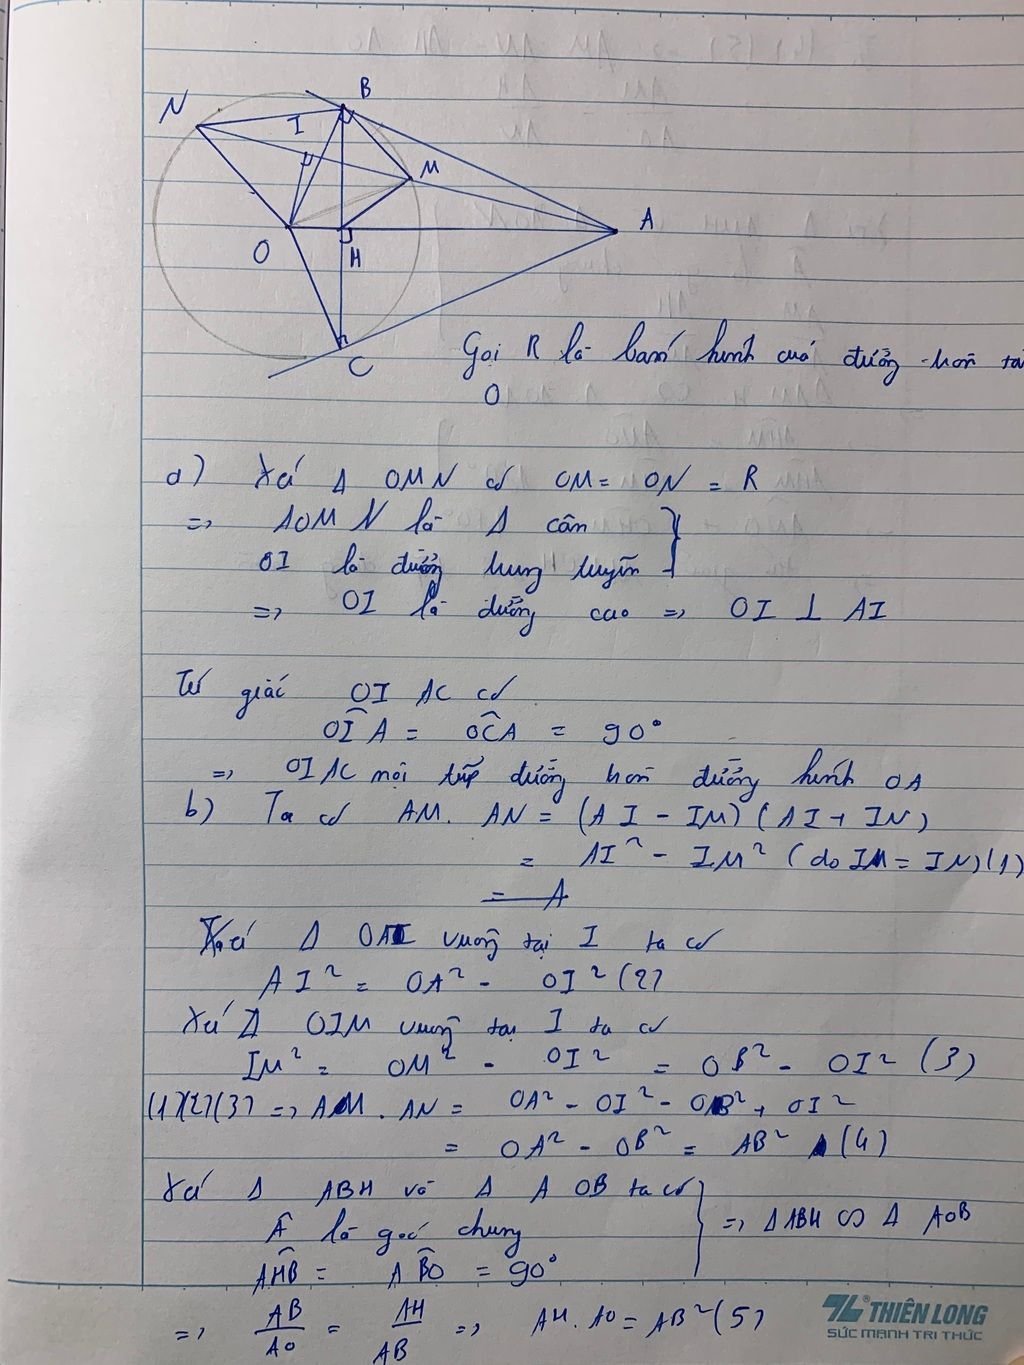 N
B
I
M
A
O
H
C
Gọi R là bán kính của đường tròn tâ
O
a) Xét Δ OMN có OM = ON = R
=> ΔOMN là Δ cân
OI là đường trung tuyến
=> OI là đường cao => OI ⊥ AI
Tứ giác OIAC có
OÎA = OĈA = 90°
=> OIAC nội tiếp đường tròn đường kính OA
b) Ta có AM. AN = (AI - IM)(AI + IN)
= AI² - IM² (do IM = IN)(1)
= A
Xét Δ OAI vuông tại I ta có
AI² = OA² - OI² (2)
Xét Δ OIM vuông tại I ta có
IM² = OM² - OI² = OB² - OI² (3)
(1)(2)(3) => AM. AN = OA² - OI² - OB² + OI²
= OA² - OB² = AB² (4)
Xét Δ ABH và Δ AOB ta có
Â là góc chung
=> ΔABH ∽ Δ AOB
AĤB = AB̂O = 90°
=> AB/AO = AH/AB => AH. AO = AB² (5)
THIÊN LONG
SỨC MẠNH TRI THỨC